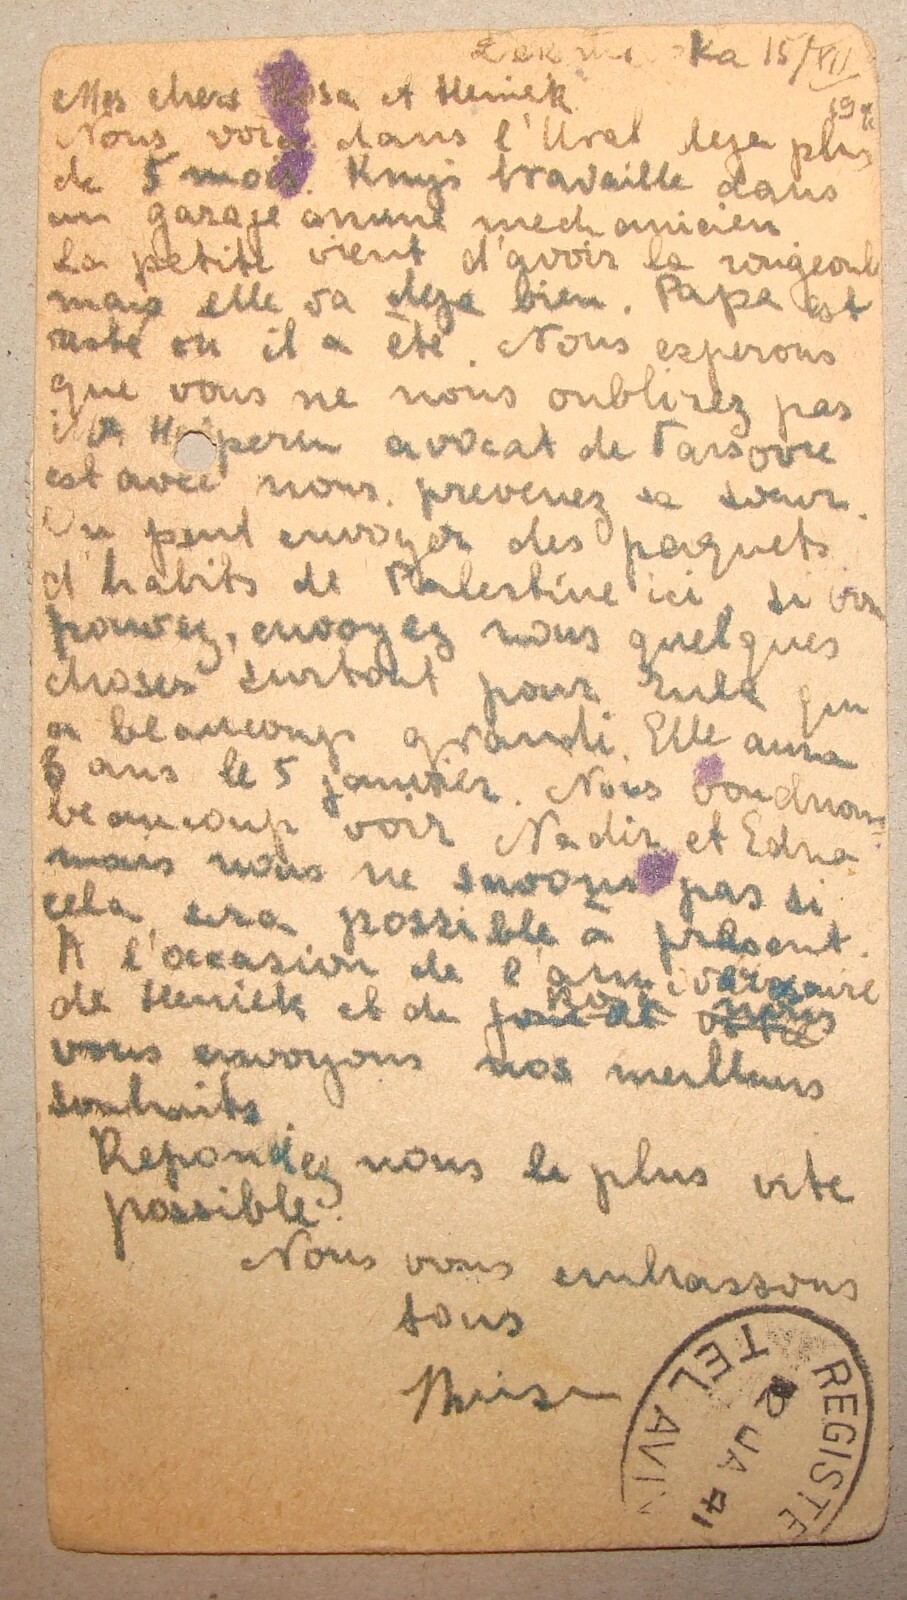 ka 15/XII
Mes chers Rosa et Heniek
Nous voici dans l'Ural deja plus
de 5 mois. Knys travaille dans
un garage comme mechanicien
La petite vient d'avoir la rougeole
mais elle va deja bien. Papa est
resté ou il a été. Nous esperons
que vous ne nous oublirez pas
avocat de Varsovie
est avec nous. prevenez sa soeur.
On peut envoyer des paquets
d'habits de Palestine ici, si vous
pouvez, envoyez nous quelques
choses surtout pour Lula qui
a beaucoup grandi. Elle aura
6 ans le 5 janvier. Nous voudrions
beaucoup voir Nadir et Edna
mais nous ne savons pas si
cela sera possible à présent.
A l'occasion de l'anniversaire
de Heniek et de Rosa nous
vous envoyons nos meilleurs
souhaits
Repondez nous le plus vite
possible.
Nous vous embrassons
tous
REGISTE
TEL AVIV
JA 41